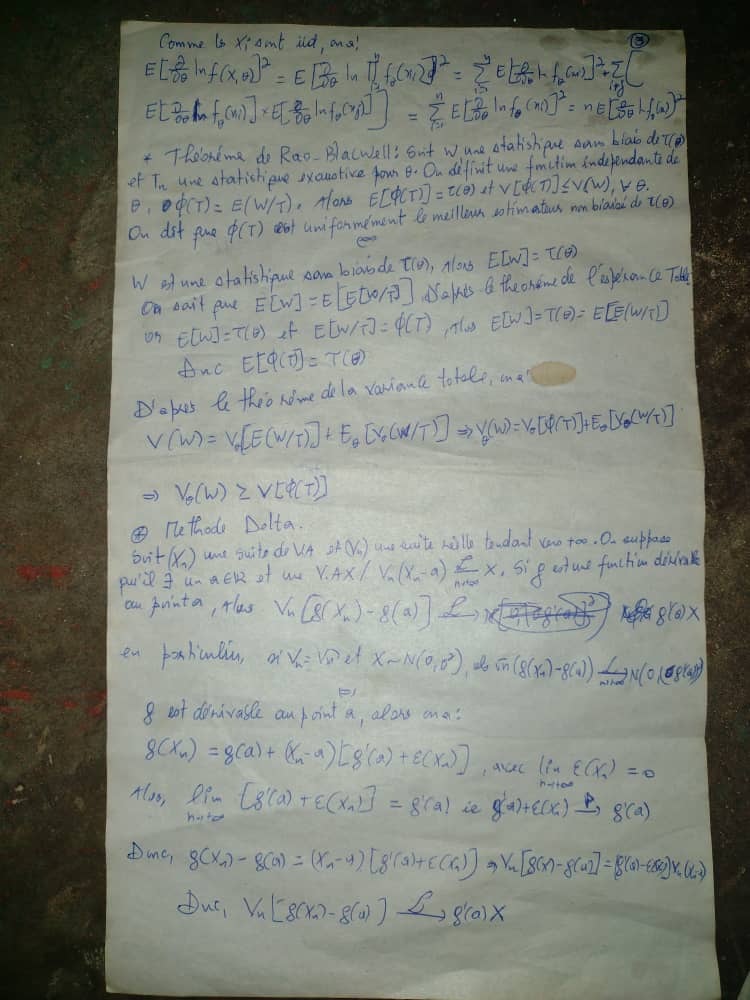 ③
Comme les Xi sont iid, on a :
E[∂/∂θ ln f(x,θ)]² = E[∂/∂θ ln ∏ fθ(xi)]² = Σ E[∂/∂θ ln fθ(xi)]² + Σ [
E[∂/∂θ ln fθ(xi)] × E[∂/∂θ ln fθ(xj)]] = Σ E[∂/∂θ ln fθ(xi)]² = n E[∂/∂θ ln fθ(x)]²
* Théorème de Rao-Blacwell : Soit W une statistique sans biais de τ(θ)
et Tn une statistique exaustive pour θ. On définit une fonction indépendante de
θ, φ(T) = E(W/T). Alors E[φ(T)] = τ(θ) et V[φ(T)] ≤ V(W), ∀ θ.
On dit que φ(T) est uniformément le meilleur estimateur non biaisé de τ(θ)
W est une statistique sans biais de τ(θ), Alors E[W] = τ(θ)
On sait que E[W] = E[E[W/T]] D'après le théorème de l'espérance Totale
or E[W] = τ(θ) et E[W/T] = φ(T), Alors E[W] = τ(θ) = E[E(W/T)]
Donc E[φ(T)] = τ(θ)
D'après le théorème de la variance totale, on a :
V(W) = Vθ[E(W/T)] + Eθ[Vθ(W/T)] ⇒ Vθ(W) = Vθ[φ(T)] + Eθ[Vθ(W/T)]
⇒ Vθ(W) ≥ V[φ(T)]
* Methode Delta.
Soit (Xn) une suite de VA et (Vn) une suite réelle tendant vers +∞. On suppose
qu'il ∃ un a∈R et une V.A X / Vn(Xn-a) L→ n→+∞ X. Si g est une fonction dérivable
au point a, Alors Vn[g(Xn) - g(a)] L→ g'(a) X
en particulier, si Vn = √n et X ~ N(0,σ²), alors √n(g(Xn) - g(a)) L→ n→+∞ N(0,(σg'(a))²)
g est dérivable au point a, alors on a :
g(Xn) = g(a) + (Xn-a)[g'(a) + ε(Xn)], avec lim n→+∞ ε(Xn) = 0
Alors, lim n→+∞ [g'(a) + ε(Xn)] = g'(a) ie g'(a) + ε(Xn) P→ g'(a)
Donc, g(Xn) - g(a) = (Xn-a)[g'(a) + ε(Xn)] ⇒ Vn[g(Xn) - g(a)] = [g'(a) - ε(Xn)] Vn(Xn-a)
Donc, Vn[g(Xn) - g(a)] L→ g'(a) X